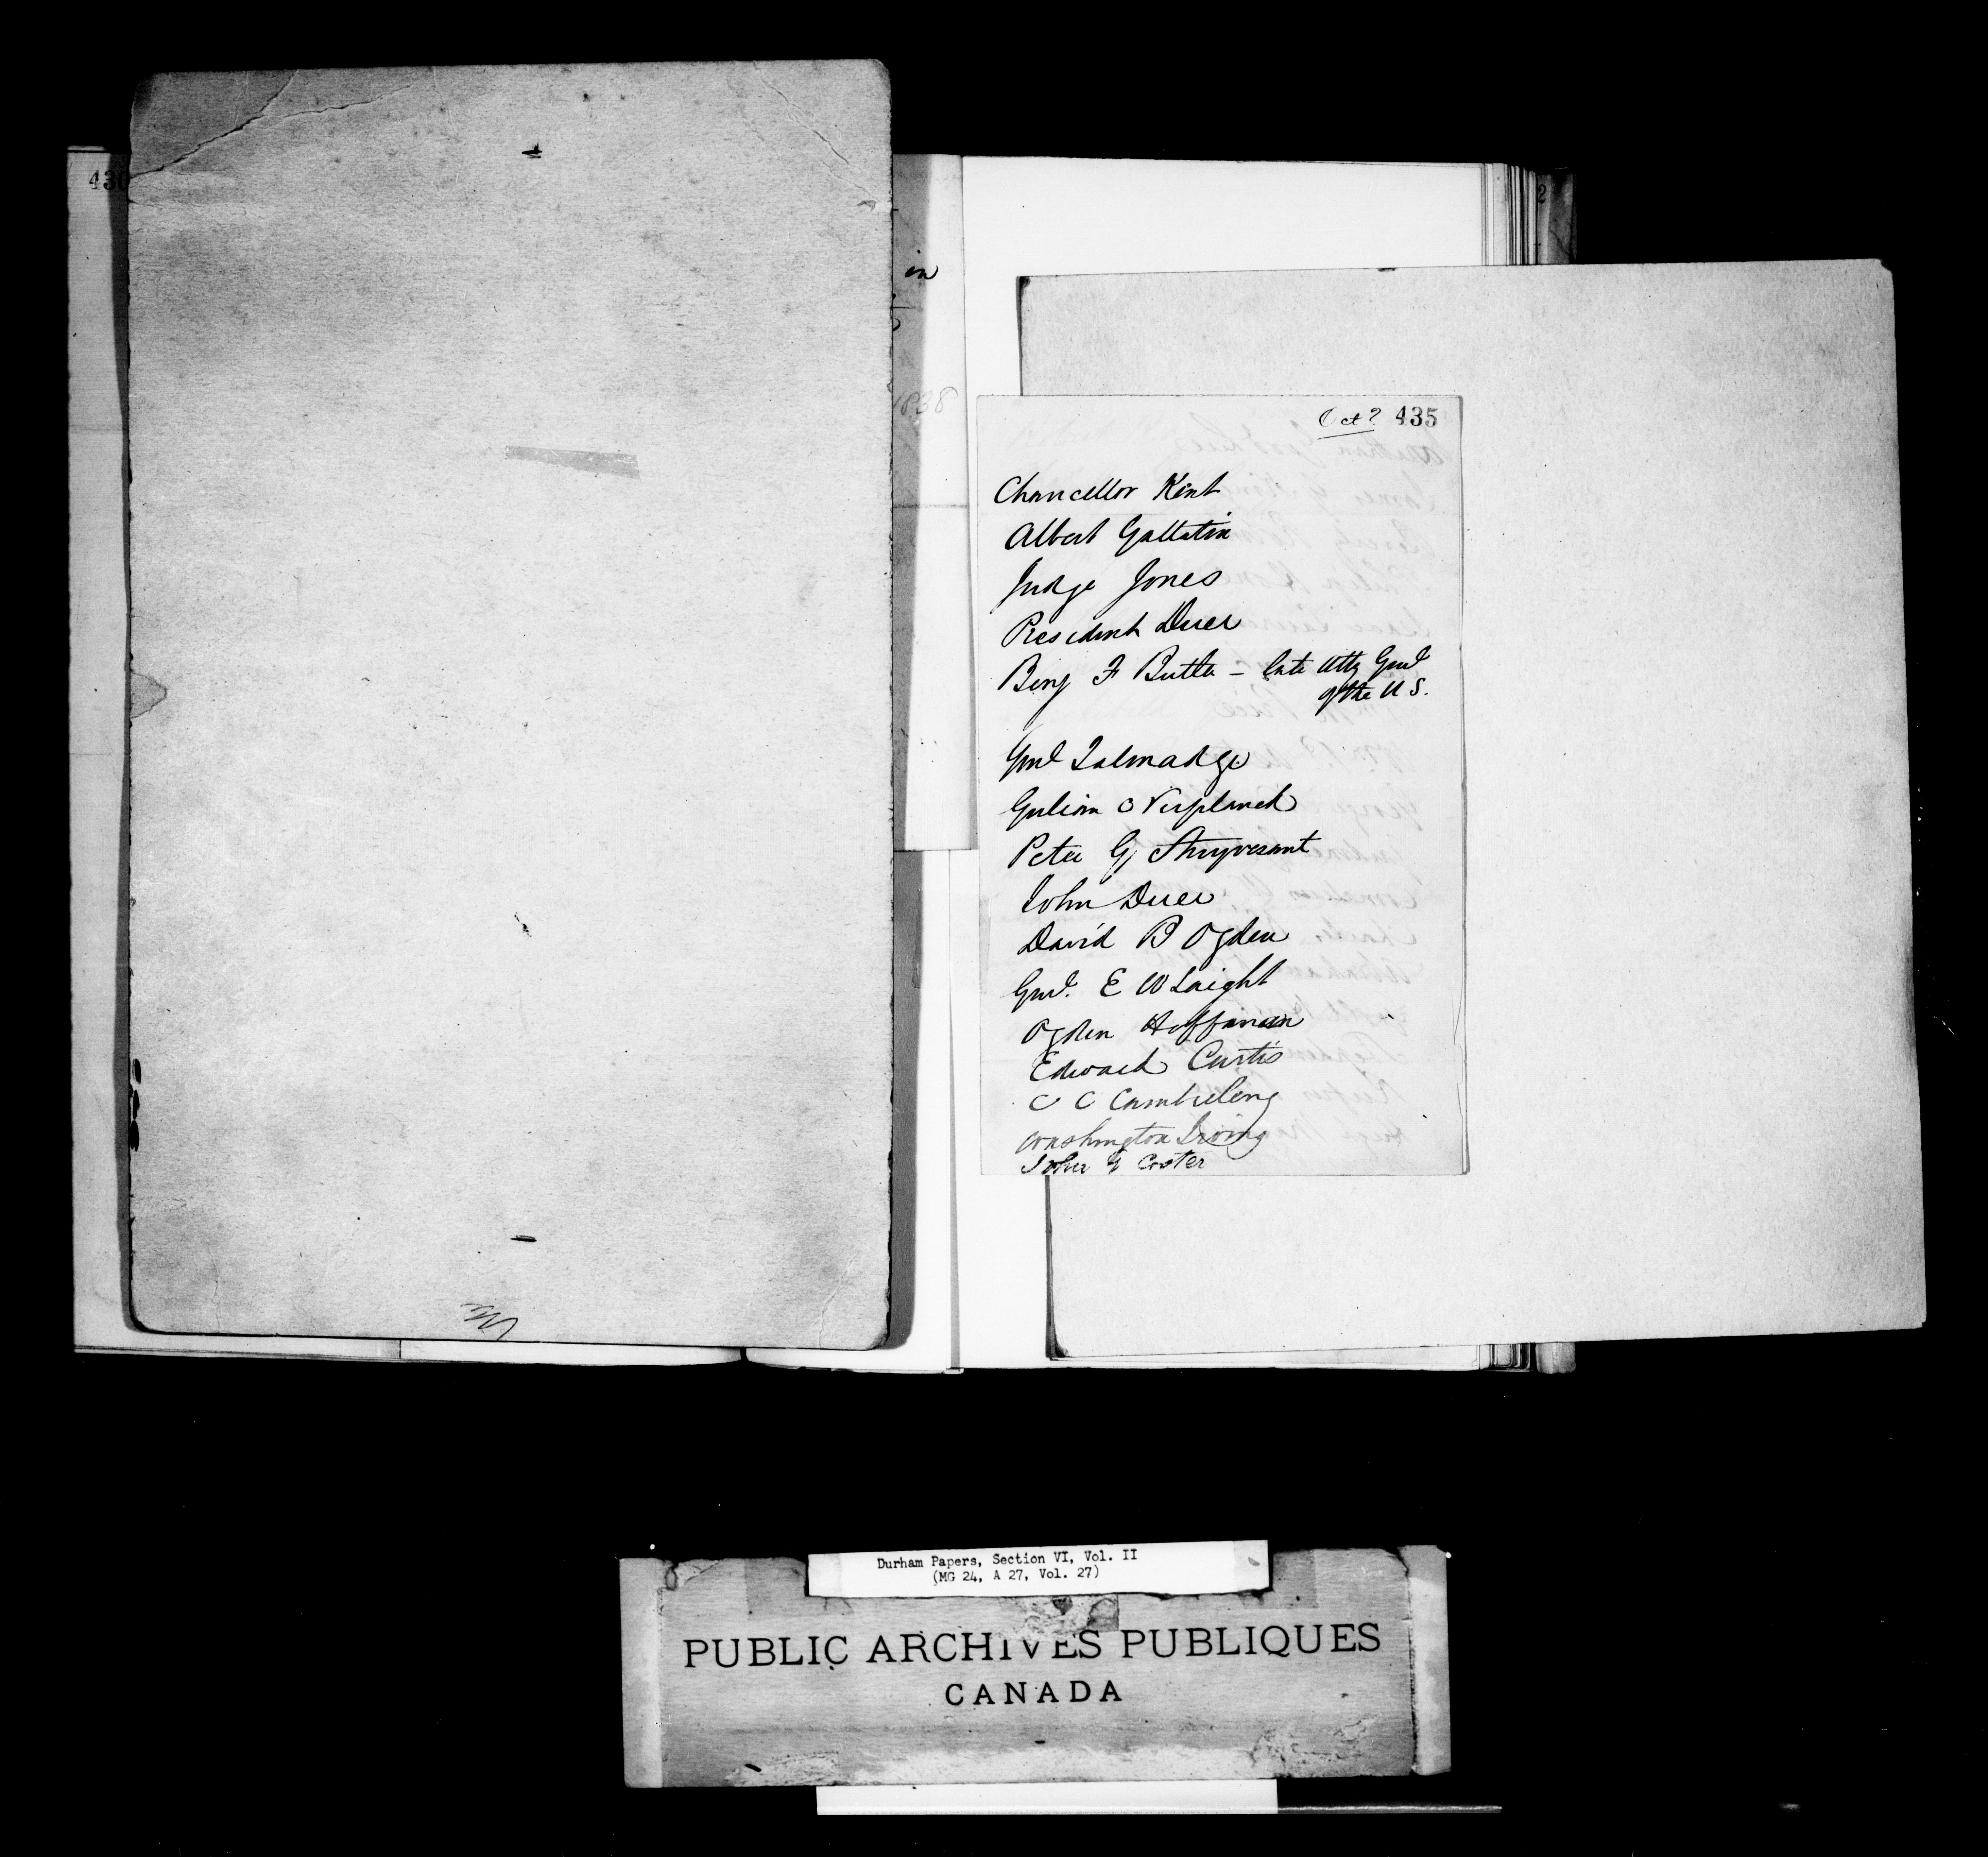 430
in
1838
Oct? 435
Chancellor Kent
Albert Gallatin
Judge Jones
President Duer
Benj F Butler – late Atty Genl
of the U S.
Genl Talmadge
Gulian C Verplanck
Peter G Stuyvesant
John Duer
David B Ogden
Genl. E W Laight
Ogden Hoffman
Edward Curtis
C C Cambreleng
Washington Irving
John G Coster
Durham Papers, Section VI, Vol. II
(MG 24, A 27, Vol. 27)
PUBLIC ARCHIVES PUBLIQUES
CANADA